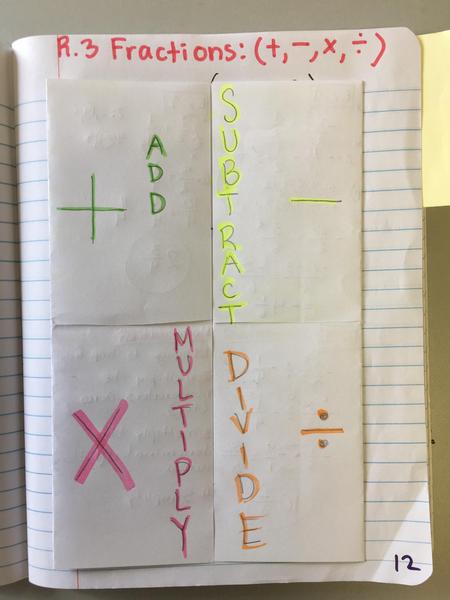 R.3 Fractions: (+, −, ×, ÷)
+
ADD
SUBTRACT
−
×
MULTIPLY
DIVIDE
÷
12